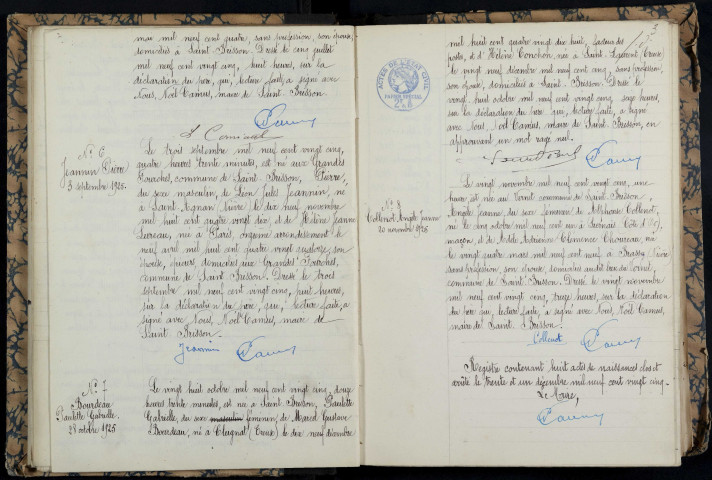 mai mil neuf cent quatre, sans profession, son épouse,
domiciliés à Saint Brisson. Dressé le cinq juillet
mil neuf cent vingt cinq, huit heures, sur la
déclaration du père, qui, lecture faite, a signé avec
Nous, Noël Camus, maire de Saint-Brisson.
Camus
N° 6
Jeannin Pierre
3 septembre 1925.
Le trois septembre mil neuf cent vingt cinq,
quatre heures trente minutes, est né aux Grandes
Fourches, commune de Saint Brisson, Pierre,
du sexe masculin, de Léon Jules Jeannin, né
à Saint Agnan Nièvre le dix neuf novembre
mil huit cent quatre vingt dix, et de Hélène Jeanne
née à Paris, onzième arrondissement le
neuf avril mil huit cent quatre vingt quatorze, son
épouse, domiciliés aux Grandes Fourches,
commune de Saint Brisson. Dressé le trois
septembre mil neuf cent vingt cinq, huit heures,
sur la déclaration du père, qui, lecture faite, a
signé avec Nous, Noël Camus, maire de
Saint Brisson.
Jeannin Camus
N° 7
Bourdeau
Paulette Gabrielle
28 octobre 1925
Le vingt huit octobre mil neuf cent vingt cinq, douze
heures trente minutes, est née à Saint Brisson, Paulette
Gabrielle, du sexe masculin féminin, de Marcel Gustave
Bourdeau, né à Clugnat (Creuse) le dix neuf décembre
mil huit cent quatre vingt dix huit, facteur des
postes, et d'Hélène Conchon, née à Saint-Laurent (Creuse)
le vingt neuf décembre mil neuf cent cinq, sans profession,
son épouse, domiciliés à Saint-Brisson. Dressé le
vingt huit octobre mil neuf cent vingt cinq, seize heures,
sur la déclaration du père qui, lecture faite, a signé
avec Nous, Noël Camus, maire de Saint-Brisson, en
approuvant un mot rayé nul.
Camus
ACTES DE L'ETAT CIVIL
PAPIER SPECIAL
N° 8
Collenot Angèle Jeanne
20 novembre 1925
Le vingt novembre mil neuf cent vingt cinq, une
heure, est née au Vernet commune de Saint Brisson,
Angèle Jeanne du sexe féminin de Alphonse Collenot,
né le cinq octobre mil neuf cent un à Bernais Côte d'Or,
maçon, et de Adèle Clémence née
le vingt quatre mars mil neuf cent neuf à Brassy Nièvre
sans profession, son épouse, domiciliés audit lieu du Vernet,
commune de Saint Brisson. Dressé le vingt novembre
mil neuf cent vingt cinq, treize heures, sur la déclaration
du père qui, lecture faite, a signé avec Nous, Noël Camus,
maire de Saint-Brisson.
Collenot Camus
Registre contenant huit actes de naissances clos et
arrêté le trente et un décembre mil neuf cent vingt cinq.
Le Maire,
Camus